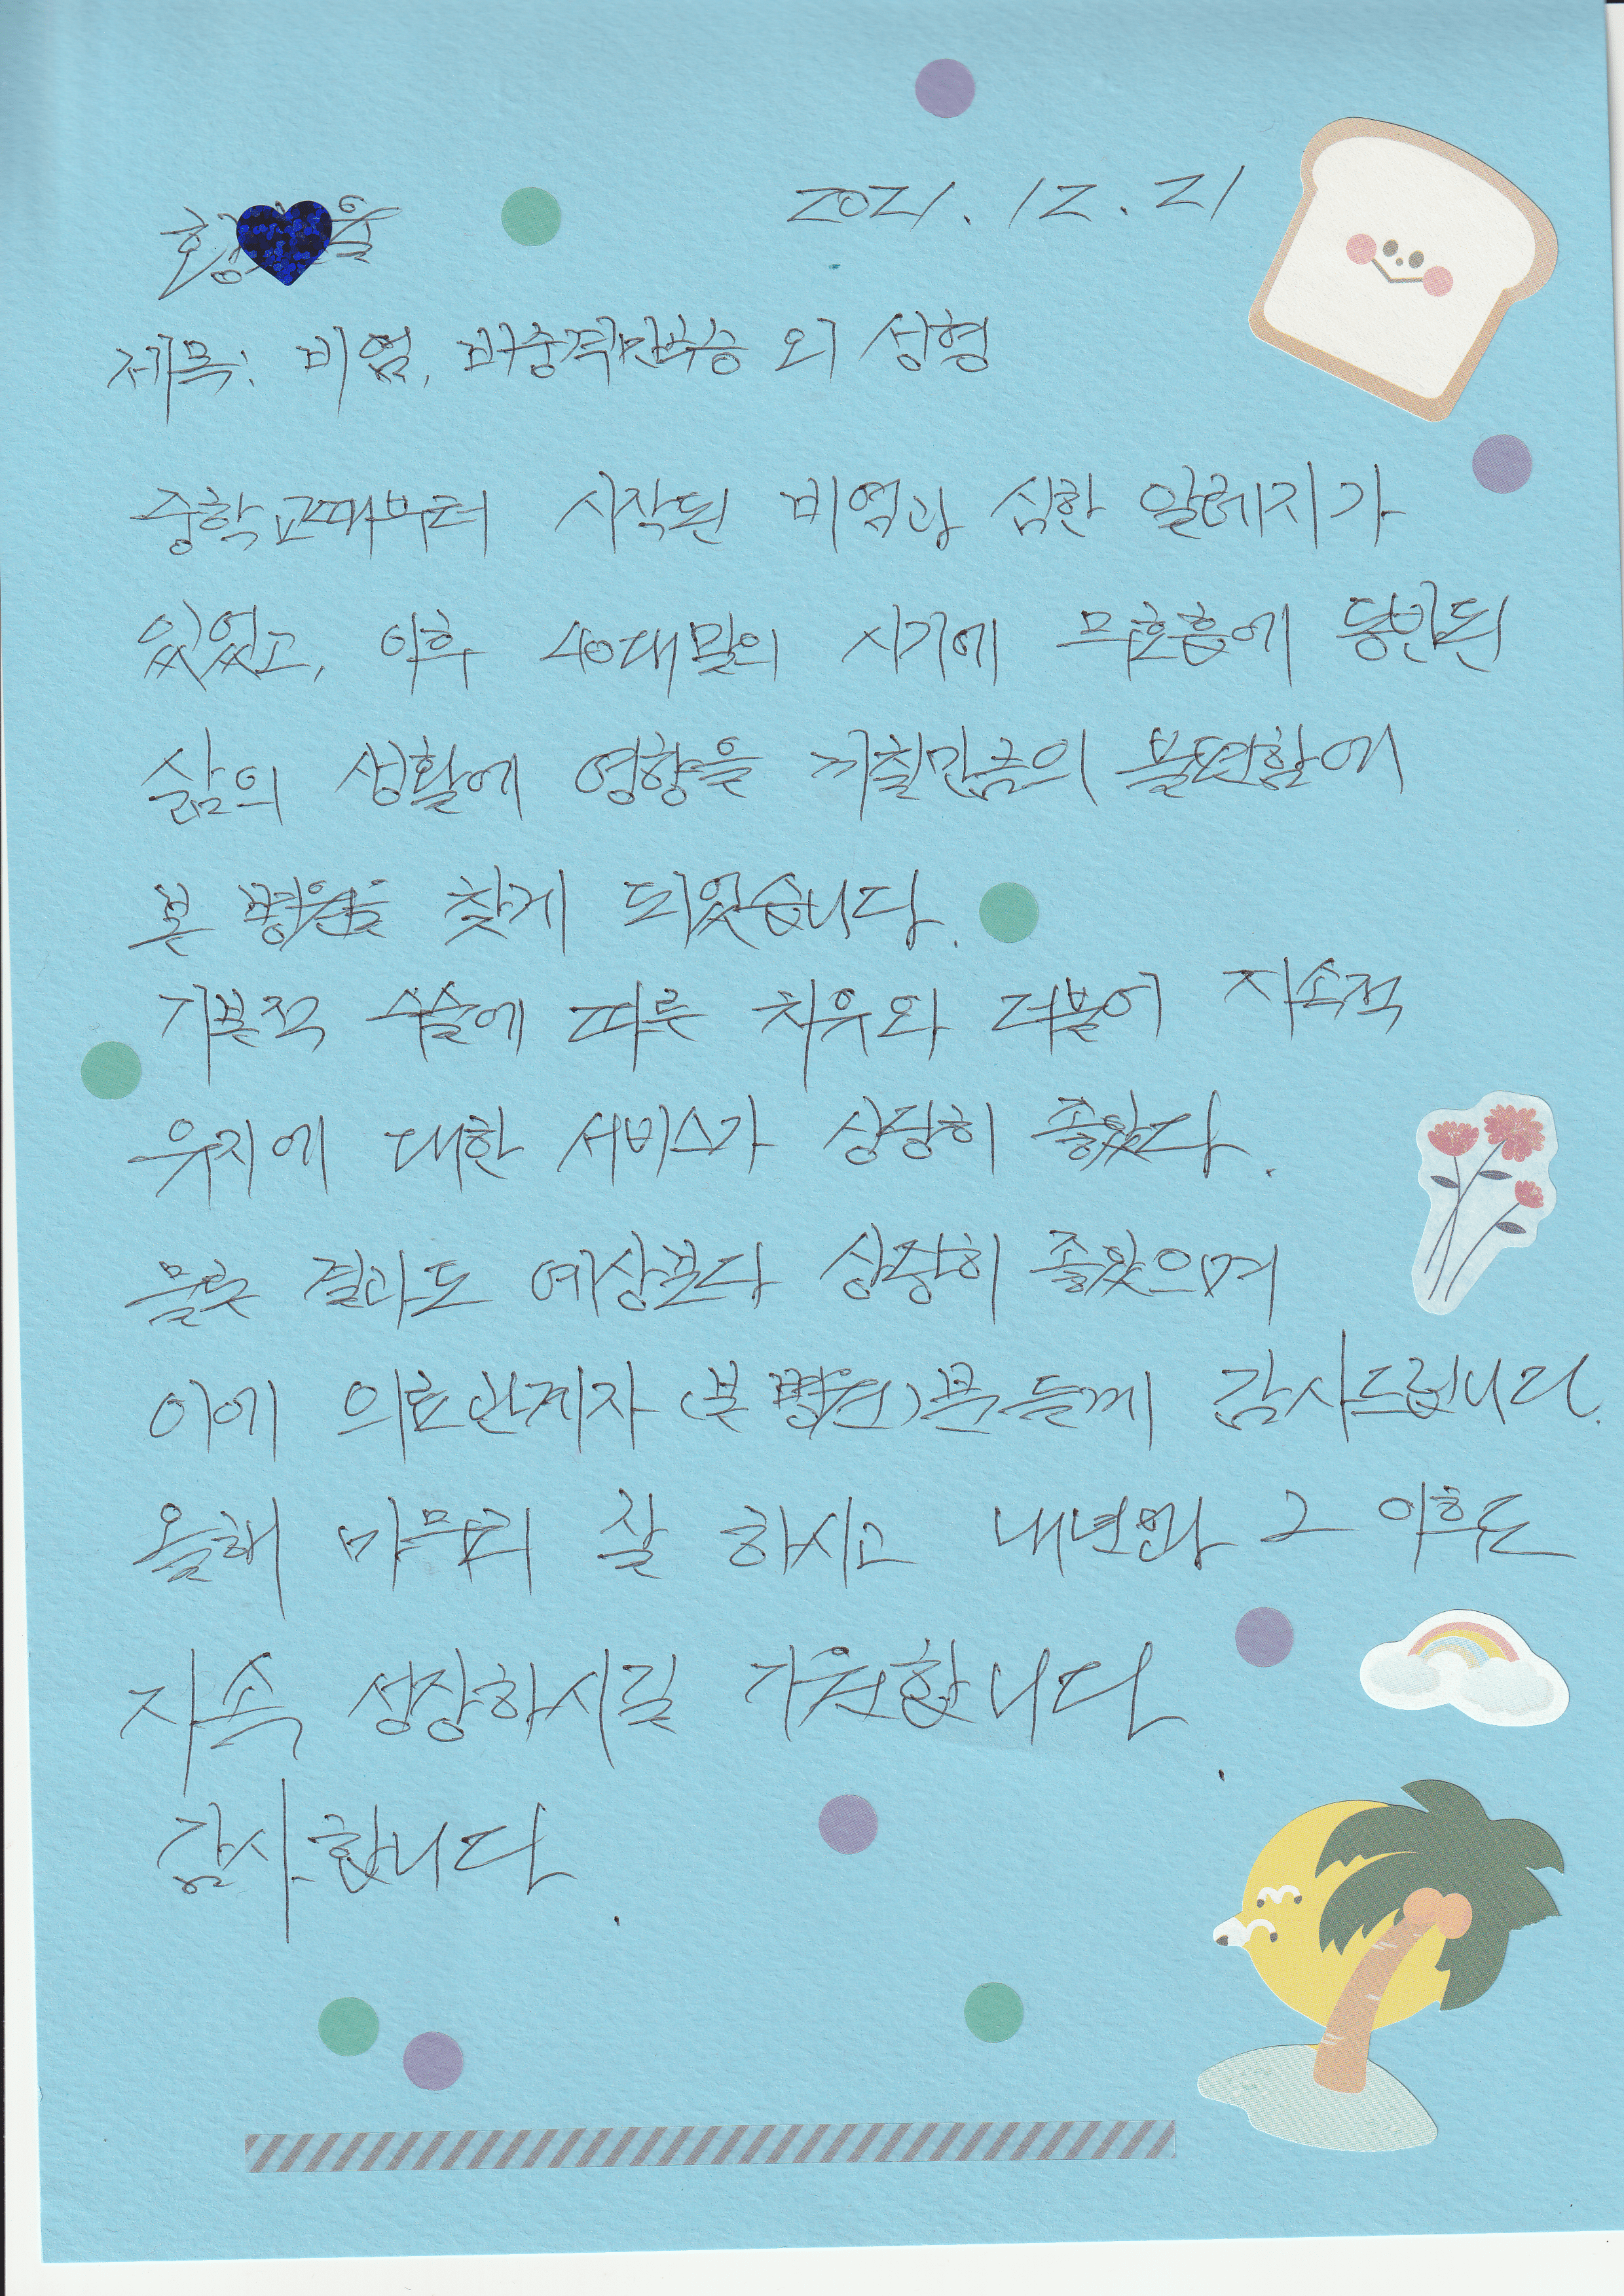 2021. 12. 21
제목: 비염, 비중격만곡증 외 성형
중학교때부터 시작된 비염과 심한 알레지가
있었고, 이후 40대말의 시기에 무호흡에 동반된
삶의 생활에 영향을 끼칠만큼의 불편함에
본 병원을 찾게 되었습니다.
기본적 수술에 따른 치유와 더불어 지속적
유지에 대한 서비스가 상당히 좋았다.
물론 결과도 예상보다 상당히 좋았으며
이에 의료관계자 (본 병원)분들께 감사드립니다.
올해 마무리 잘 하시고 내년과 그 이후도
지속 성장하시길 기원합니다.
감사합니다.